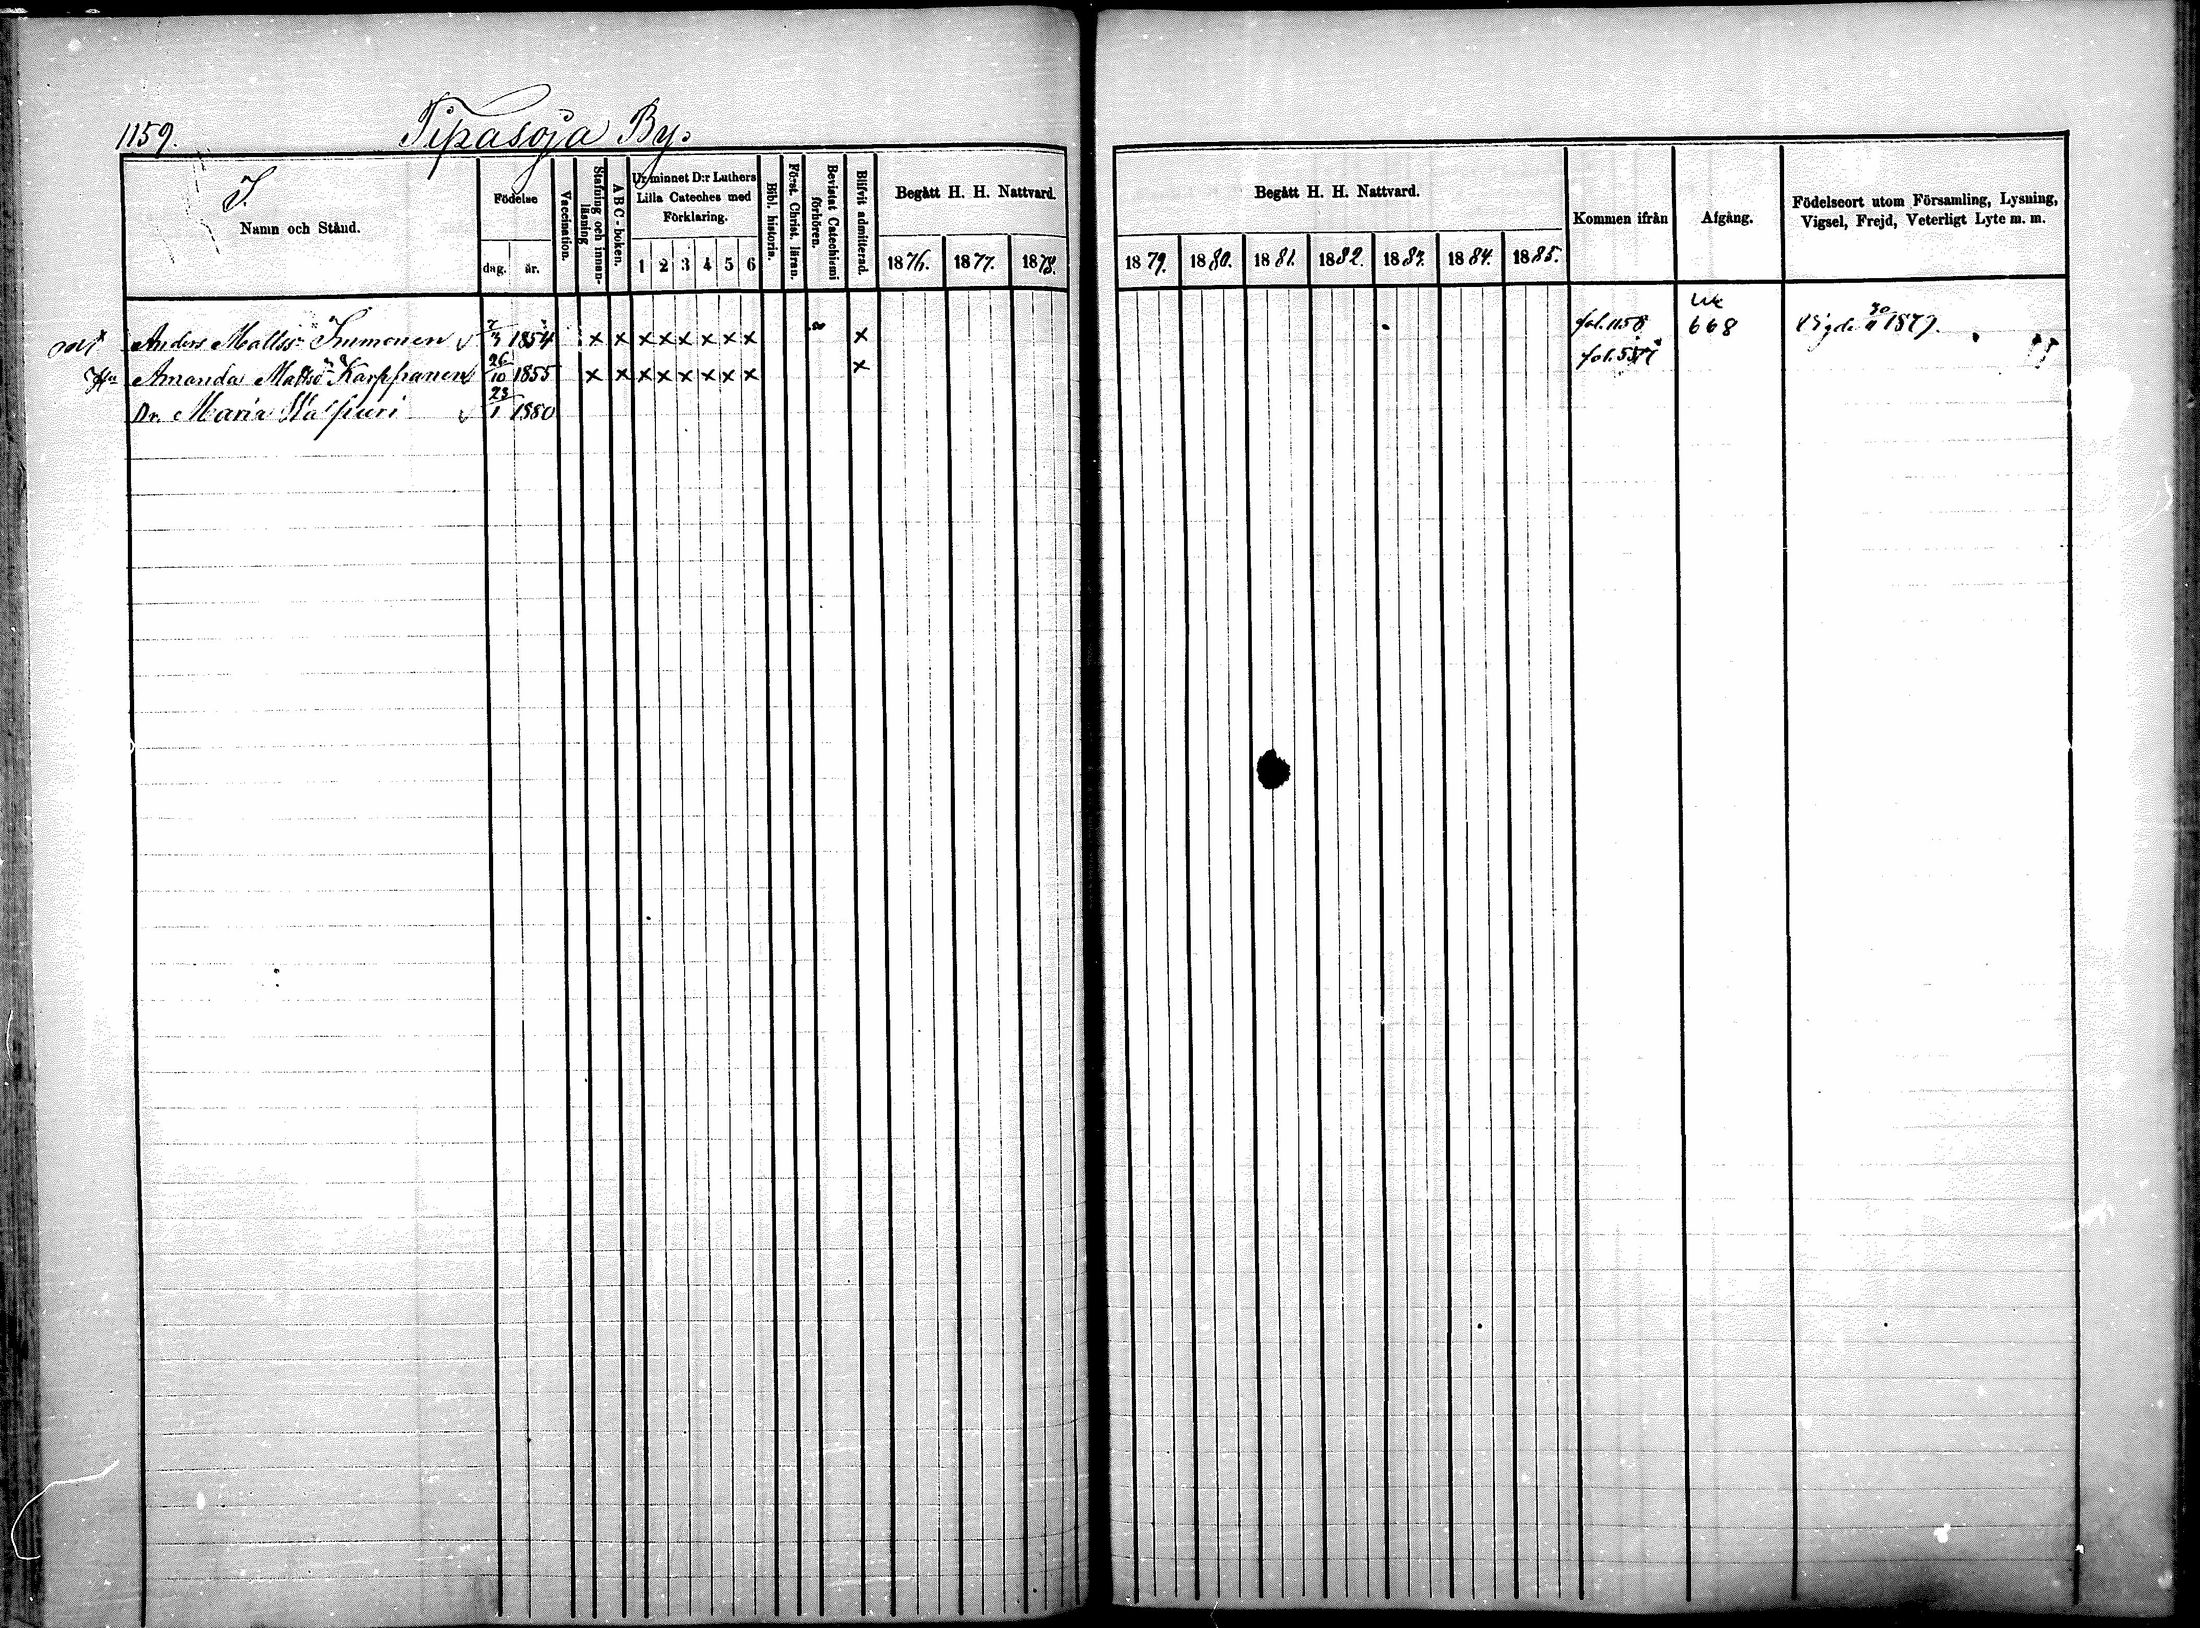 1159. Tipasoja By.
I.
Namn och Stånd.
Födelse
dag. år.
Vaccination.
Stafning och innan-läsning
ABC-boken.
Ur minnet D:r Luthers Lilla Cateches med Förklaring.
1 2 3 4 5 6
Bibl. historia.
Först. Christ. läran.
Bevistat Catechismi förhören.
Blifvit admitterad.
Begått H. H. Nattvard.
1876. 1877. 1878.
Begått H. H. Nattvard.
1879. 1880. 1881. 1882. 1883. 1884. 1885.
Kommen ifrån
Afgång.
Födelseort utom Församling, Lysning, Vigsel, Frejd, Veterligt Lyte m. m.
Anders Matts:n Immonen 1854 x x x x x x x x x fol. 1158 668 Vigde 30/11 1879.
Hu Amanda Matsd:r Karppanen 26/10 1855 x x x x x x x x x
Dr. Maria Walpuri 23/1 1880